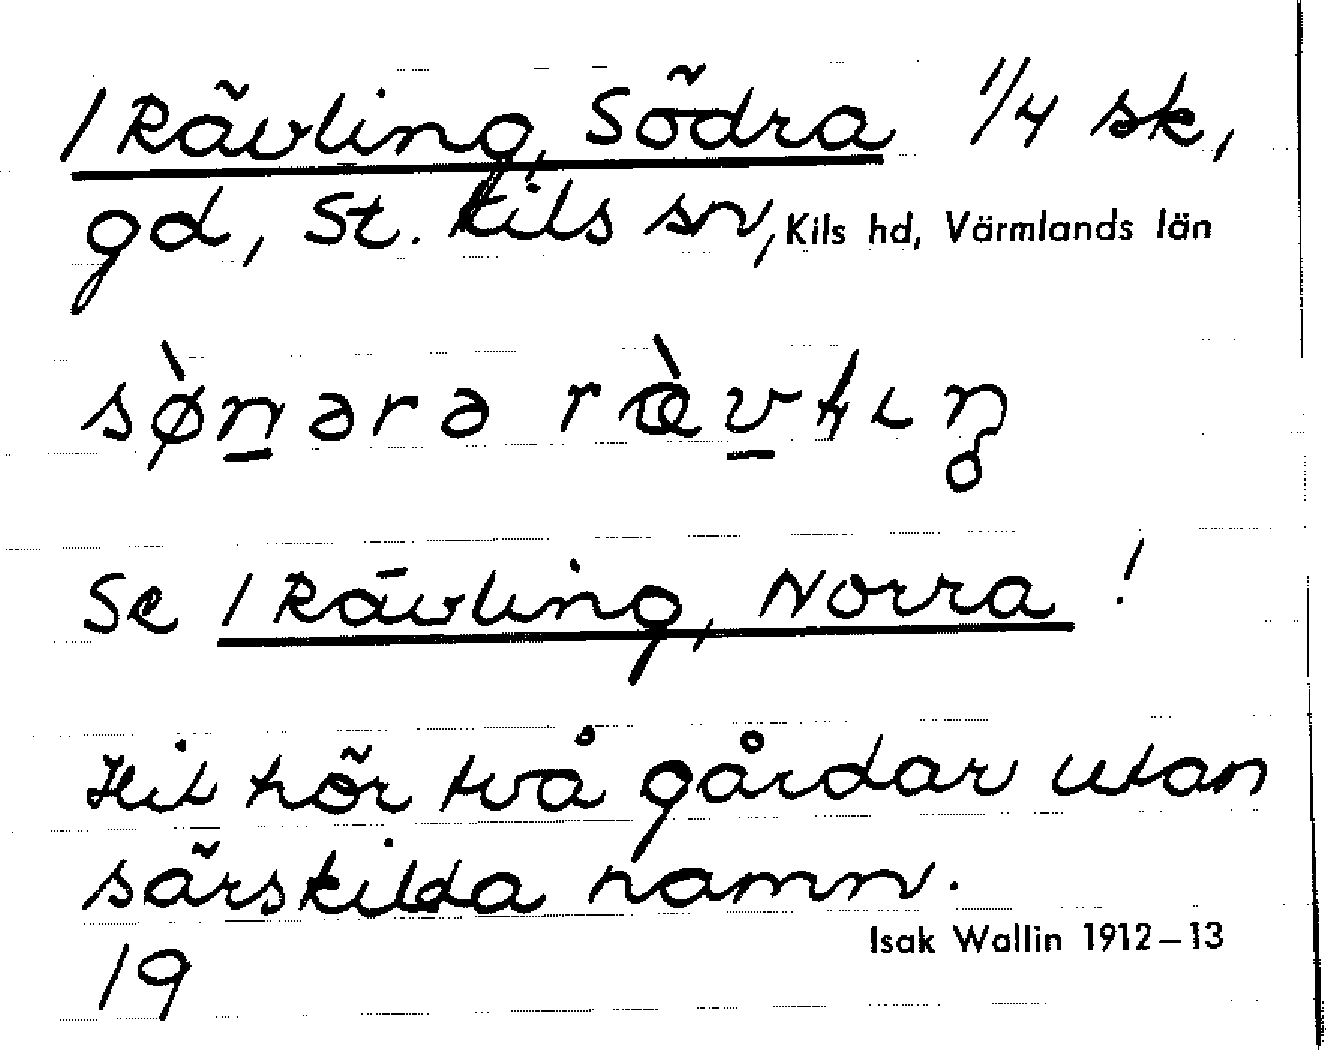 / Rävling, Södra 1/4 sk,
gd, St. Kils sn, Kils hd, Värmlands län
sø̀n̲ərə ræ̀v̲lıŋ
Se / Rävling, Norra !
Hit hör två gårdar utan
särskilda namn.
Isak Wallin 1912–13
19